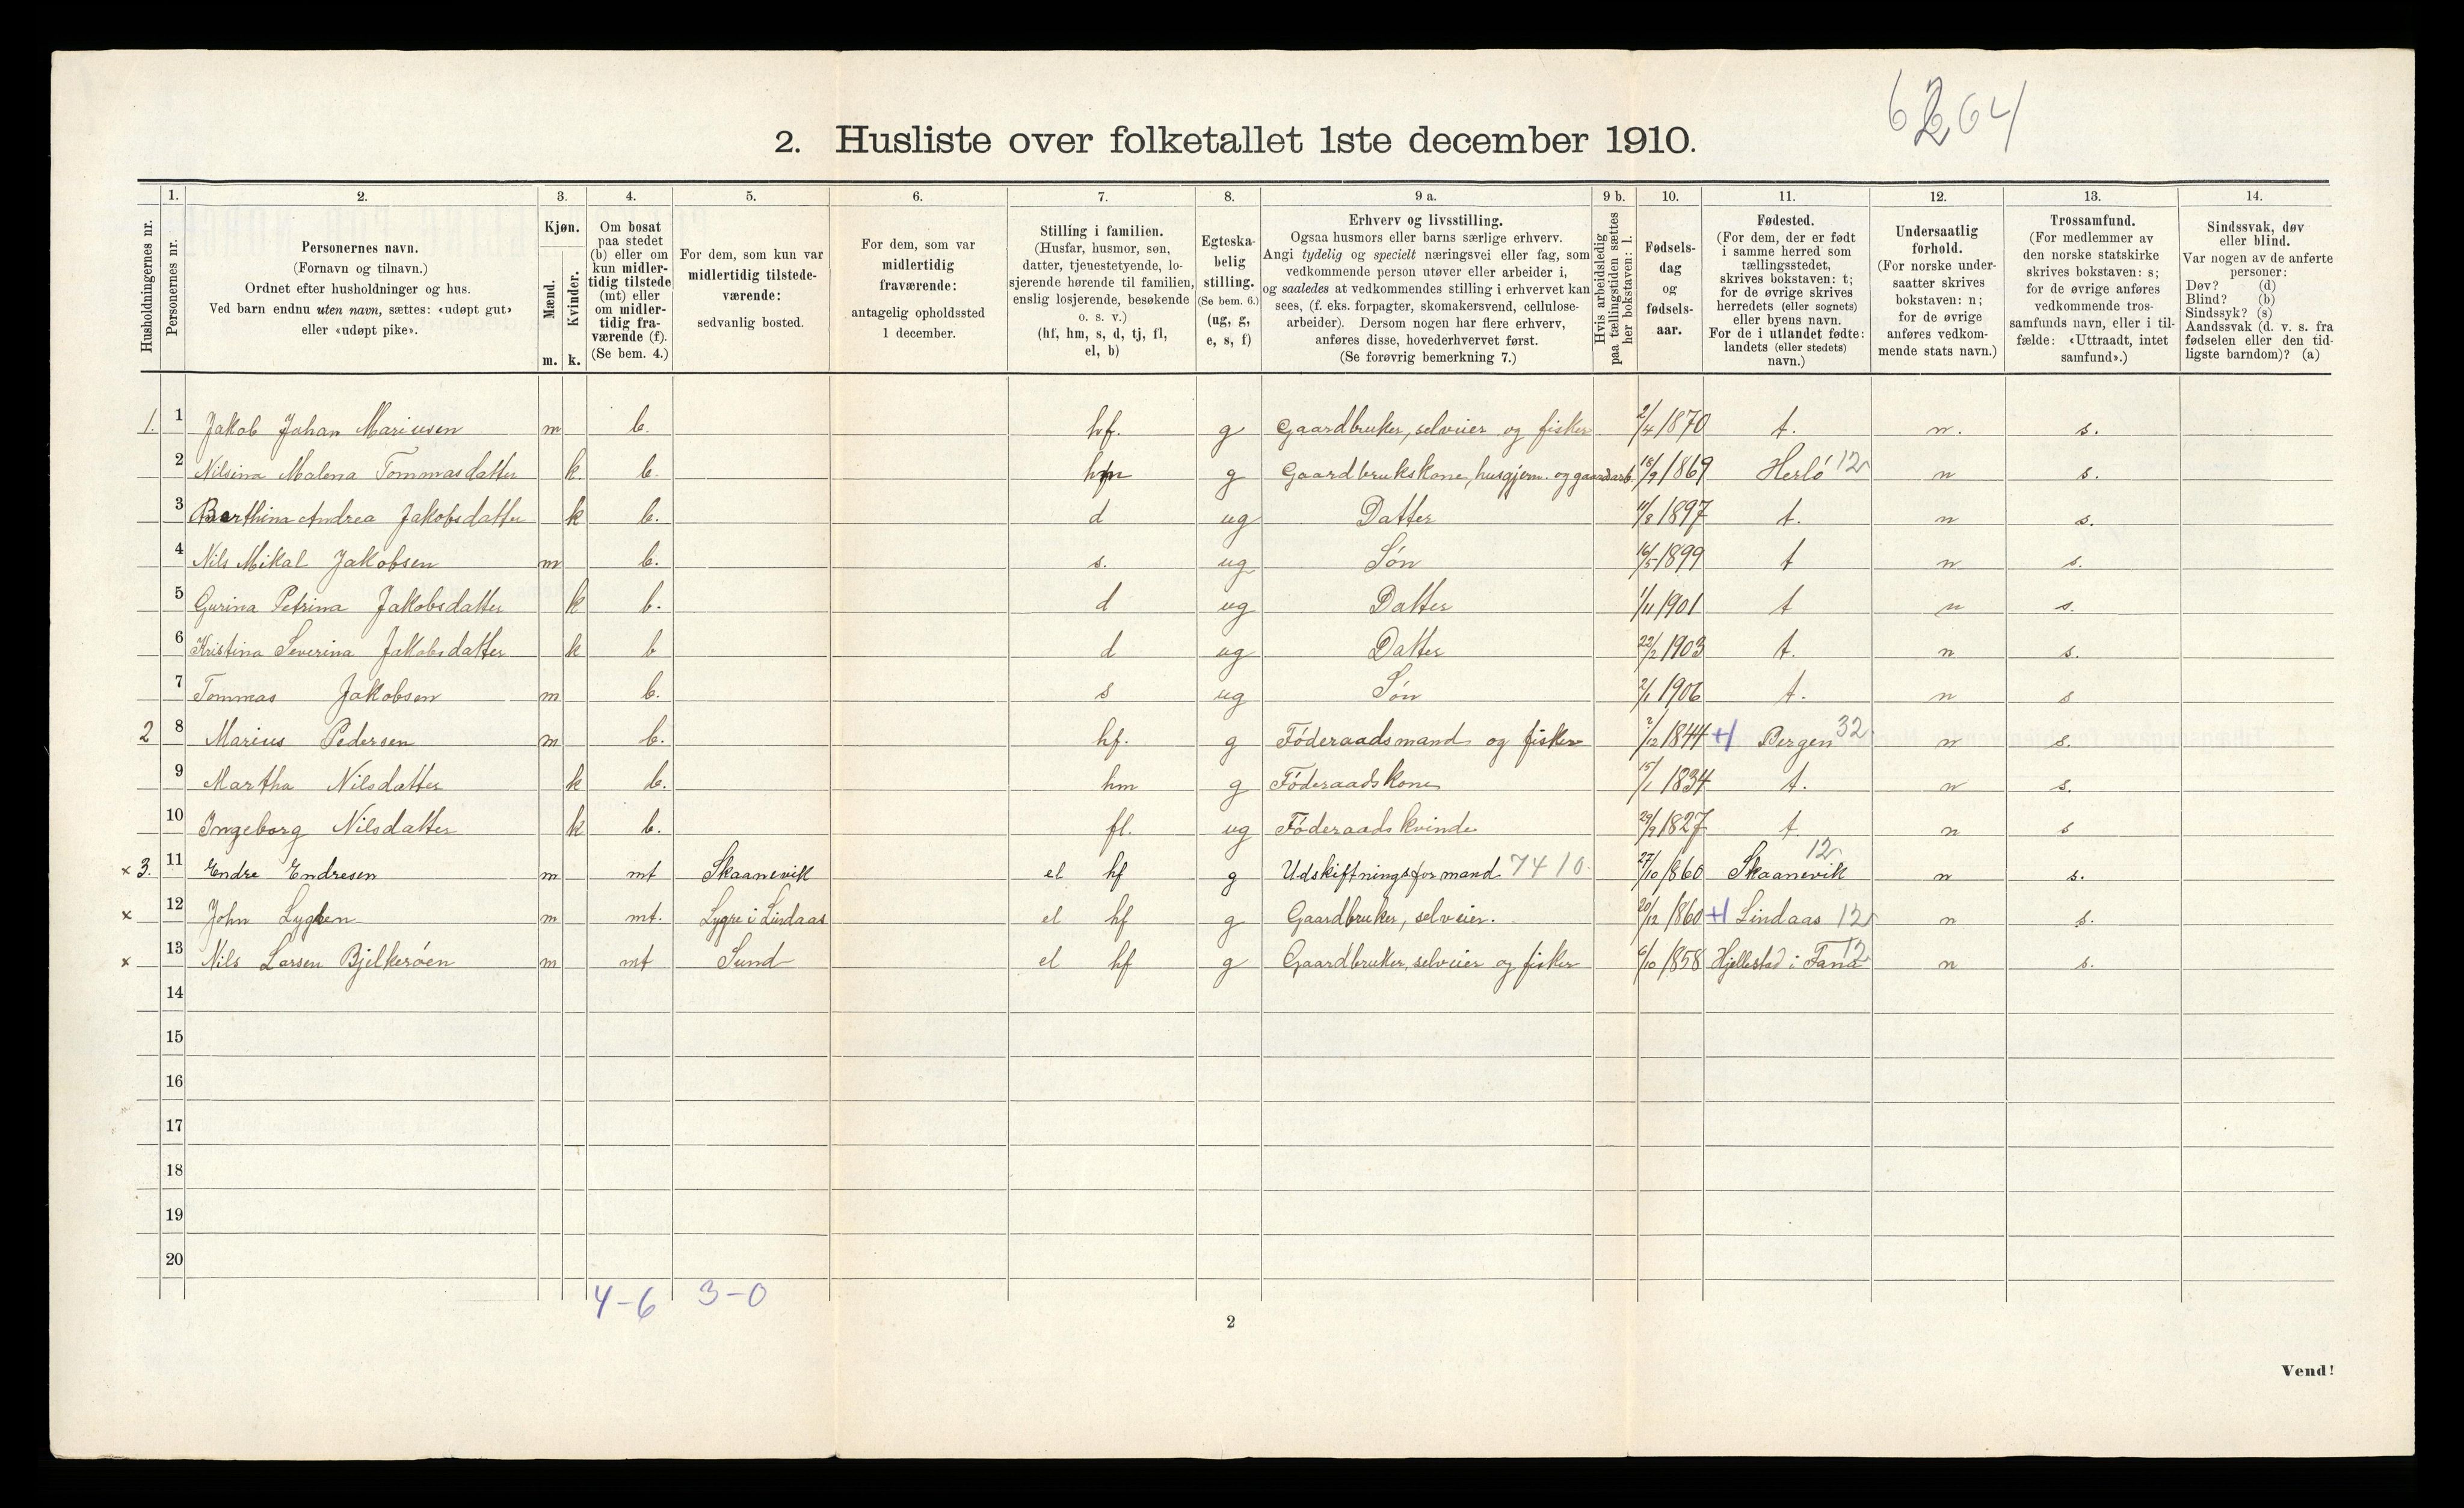 6264
2. Husliste over folketallet 1ste december 1910.
Husholdningernes nr.
1. Personernes nr.
2. Personernes navn. (Fornavn og tilnavn.) Ordnet efter husholdninger og hus. Ved barn endnu uten navn, sættes: «udøpt gut» eller «udøpt pike».
3. Kjøn. Mænd. m. Kvinder. k.
4. Om bosat paa stedet (b) eller om kun midlertidig tilstede (mt) eller om midlertidig fraværende (f). (Se bem. 4.)
5. For dem, som kun var midlertidig tilstedeværende: sedvanlig bosted.
6. For dem, som var midlertidig fraværende: antagelig opholdssted 1 december.
7. Stilling i familien. (Husfar, husmor, søn, datter, tjenestetyende, losjerende hørende til familien, enslig losjerende, besøkende o. s. v.) (hf, hm, s, d, tj, fl, el, b)
8. Egteskabelig stilling. (Se bem. 6.) (ug, g, e, s, f)
9 a. Erhverv og livsstilling. Ogsaa husmors eller barns særlige erhverv. Angi tydelig og specielt næringsvei eller fag, som vedkommende person utøver eller arbeider i, og saaledes at vedkommendes stilling i erhvervet kan sees, (f. eks. forpagter, skomakersvend, cellulosearbeider). Dersom nogen har flere erhverv, anføres disse, hovederhvervet først. (Se forøvrig bemerkning 7.)
9 b. Hvis arbeidsledig paa tællingstiden sættes her bokstaven: l.
10. Fødselsdag og fødselsaar.
11. Fødested. (For dem, der er født i samme herred som tællingsstedet, skrives bokstaven: t; for de øvrige skrives herredets (eller sognets) eller byens navn. For de i utlandet fødte: landets (eller stedets) navn.)
12. Undersaatlig forhold. (For norske undersaatter skrives bokstaven: n; for de øvrige anføres vedkommende stats navn.)
13. Trossamfund. (For medlemmer av den norske statskirke skrives bokstaven: s; for de øvrige anføres vedkommende trossamfunds navn, eller i tilfælde: «Uttraadt, intet samfund».)
14. Sindssvak, døv eller blind. Var nogen av de anførte personer: Døv? (d) Blind? (b) Sindssyk? (s) Aandssvak (d. v. s. fra fødselen eller den tidligste barndom)? (a)
1. 1 Jakob Johan Mariusen m b. hf. g Gaardbruker, selveier og fisker 2/4 1870 t. n. s.
2 Nilsina Malena Tommasdatter k. b. hm g Gaardbrukskone, husgjern. og gaardsarb. 18/9 1869 Herlö 12 n s.
3 Berthina Andrea Jakobsdatter k b. d ug Datter 11/8 1897 t. n s.
4 Nils Mikal Jakobsen m b. s. ug Søn 16/5 1899 t n s.
5 Gurina Petrina Jakobsdatter k b. d ug Datter 1/11 1901 t n s.
6 Kristina Severina Jakobsdatter k b d ug Datter 22/2 1903 t. n s.
7 Tommas Jakobsen m b. s ug Søn 2/1 1906 t. n s
2 8 Marius Pedersen m b. hf. g Föderaadsmand og fisker 2/12 1844 + Bergen 32 n s.
9 Martha Nilsdatter k b. hm g Föderaadskone 15/1 1834 t. n s.
10 Ingeborg Nilsdatter k b. fl. ug Föderaads kvinde 29/9 1827 t. n s
x 3. 11 Endre Endresen m mt Skaanevik el hf g Udskiftningsformand 7410. 27/10 1860 Skaanevik 12 n s.
x 12 John Lygren m mt. Lygre i Lindaas el hf g Gaardbruker, selveier. 20/12 1860 + Lindaas 12 n s.
x 13 Nils Larsen Bjelkeröen m mt Sund el hf g Gaardbruker, selveier og fisker 6/10 1858 Hjellestad i Fana 12 n s.
14
15
16
17
18
19
20
4-6 3-0
2
Vend!